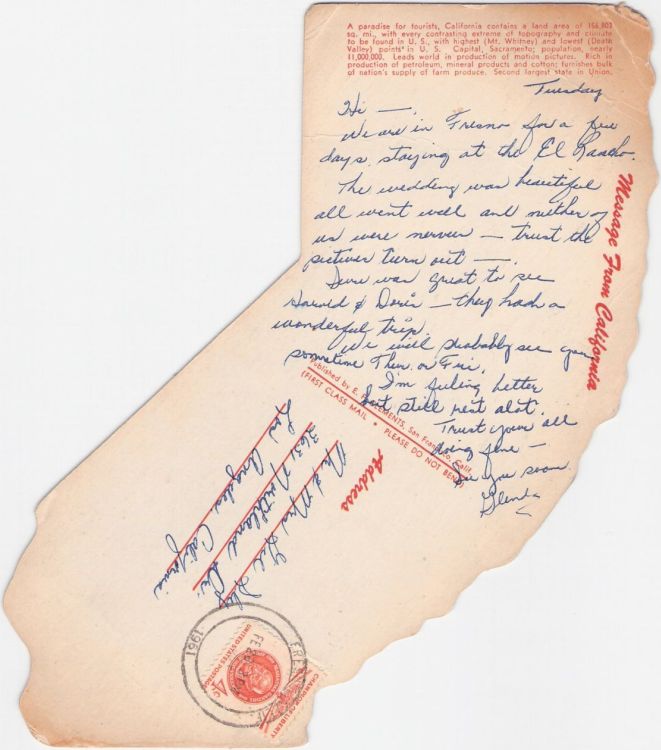 A paradise for tourists, California contains a land area of 156,803
sq. mi., with every contrasting extreme of topography and climate
to be found in U. S., with highest (Mt. Whitney) and lowest (Death
Valley) points in U. S. Capital, Sacramento; population, nearly
11,000,000. Leads world in production of motion pictures. Rich in
production of petroleum, mineral products and cotton; furnishes bulk
of nation's supply of farm produce. Second largest state in Union.
Tuesday
Hi —,
We are in Fresno for a few
days, staying at the El Rancho.
The wedding was beautiful
all went well and neither of
us were nervous — trust the
pictures turn out —.
Sure was great to see
Harold & Doris — they had a
wonderful trip.
We will probably see you
sometime Thur. or Fri.
I'm feeling better
but still rest alot.
Trust your all
doing fine —
See you soon.
Glenda
Message From California
Published by E. F. CLEMENTS, San Francisco, Calif.
(FIRST CLASS MAIL • PLEASE DO NOT BEND)
Address
Mr & Mrs
Los Angeles
California
1961
FEB
FRESNO
UNITED STATES POSTAGE
4¢
CHAMPION OF LIBERTY